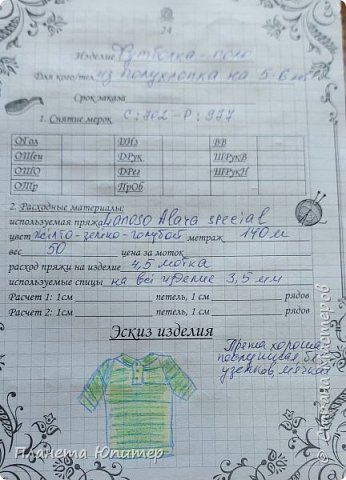 24
Изделие Футболка-поло
Для кого/тел из полухлопка на 5-6 лет
Срок заказа
1. Снятие мерок С:762-Р:977
ОГол ДИз ВВ
ОШеи ДРук ШРукВ
ОШО ДРег ШРукН
ОТр ПрОб
2. Расходные материалы:
используемая пряжа Lanoso Alara special
цвет желто-зелено-голубой метраж 140 м
вес 50 цена за моток
расход пряжи на изделие 4,5 мотка
используемые спицы на всё изделие 3,5 мм
Расчет 1: 1см петель, 1 см рядов
Расчет 2: 1см петель, 1 см рядов
Эскиз изделия
Пряжа хорошая,
послушная, без
узелков, мягкая
Планета Юпитер
© Страна Мастеров